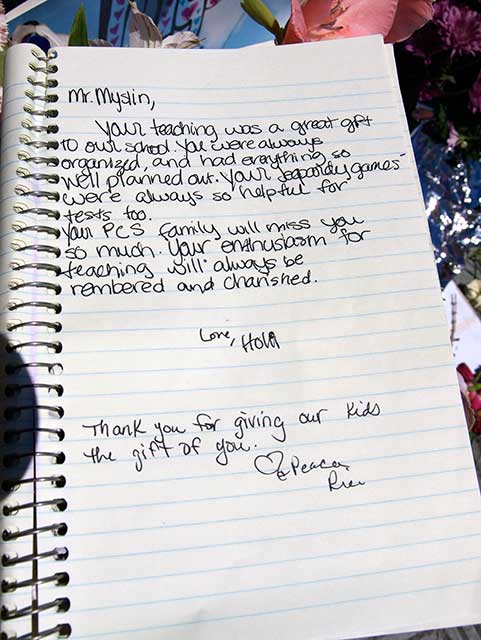 Mr. Myslin,
Your teaching was a great gift
to our school. You were always
organized, and had everything so
well planned out. Your Jeopardy games
were always so helpful for
tests too.
Your PCS family will miss you
so much. Your enthusiasm for
teaching will always be
rembered and charished.
Love,
Thank you for giving our kids
the gift of you.
Peace,